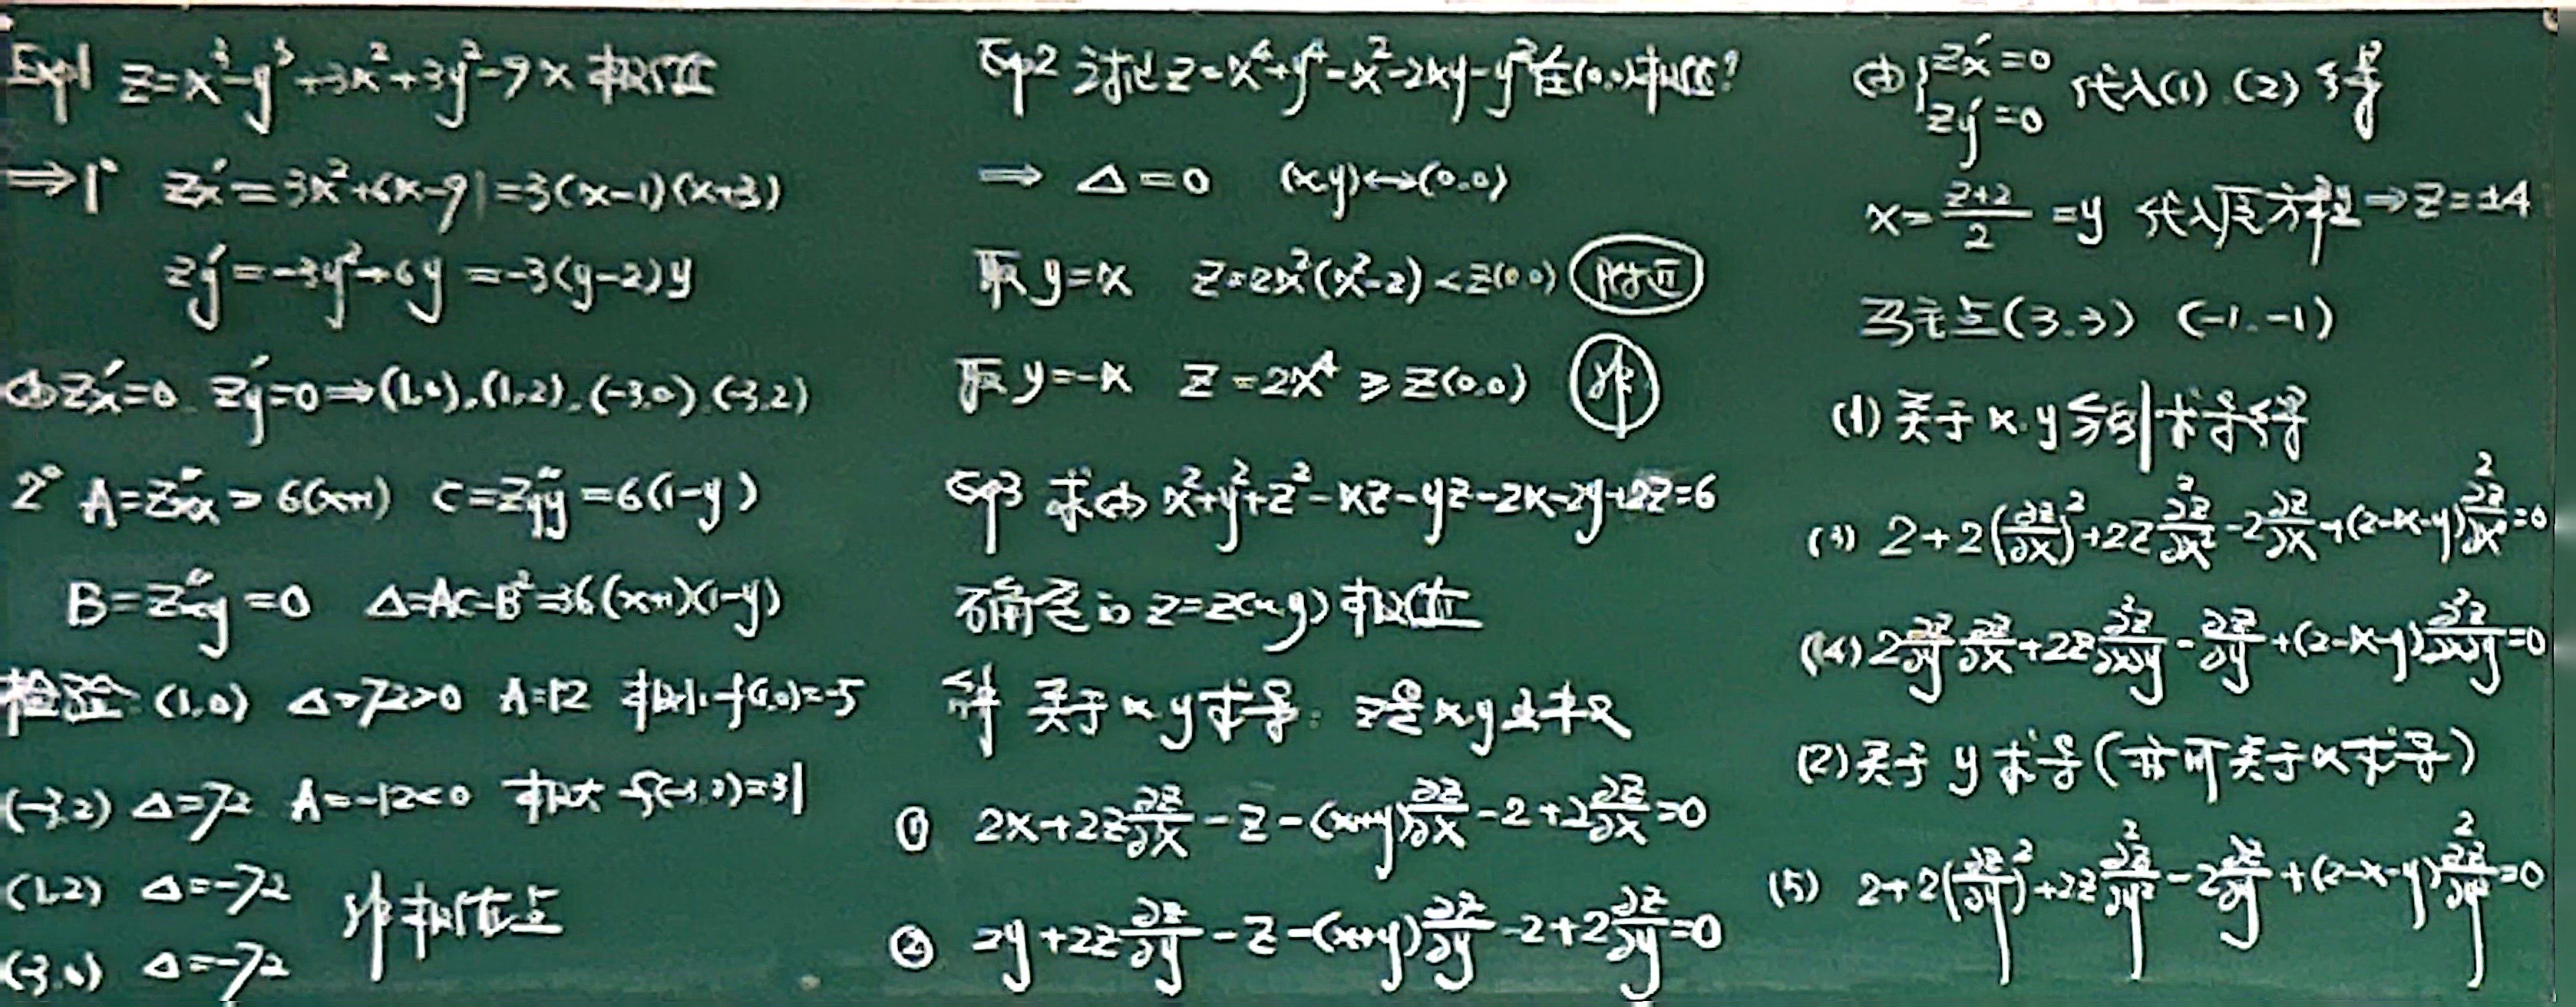 Eg1 z=x³-y³+3x²+3y²-9x 极值
⇒1° zx′=3x²+6x-9=3(x-1)(x+3)
zy′=-3y²+6y=-3(y-2)y
由zx′=0. zy′=0⇒(1.0).(1.2).(-3.0).(-3.2)
2° A=zxx″=6(x+1) C=zyy″=6(1-y)
B=zxy″=0 Δ=AC-B²=36(x+1)(1-y)
检验:(1.0) Δ=72>0 A=12 极小 f(1.0)=-5
(-3.2) Δ=72 A=-12<0 极大 f(-3.2)=31
(1.2) Δ=-72 非极值点
(-3.0) Δ=-72
Eg2 讨论z=x⁴+y⁴-x²-2xy-y²在(0.0)极值?
⇒ Δ=0 (x.y)↔(0.0)
取y=x z=2x²(x²-2)<z(0.0) 附近
取y=-x z=2x⁴≥z(0.0) 非
Eg3 求由x²+y²+z²-xz-yz-2x-2y+2z=6
确定的z=z(x.y)极值
解 关于x.y求导. z是x.y函数
① 2x+2z∂z/∂x-z-(x+y)∂z/∂x-2+2∂z/∂x=0
② 2y+2z∂z/∂y-z-(x+y)∂z/∂y-2+2∂z/∂y=0
由{zx′=0 zy′=0 代入(1).(2)得
x=(z+2)/2=y 代入原方程⇒z=±4
驻点(3.3) (-1.-1)
(1)关于x.y分别求导得
(3) 2+2(∂z/∂x)²+2z∂²z/∂x²-2∂z/∂x+(2-x-y)∂²z/∂x²=0
(4) 2∂z/∂y ∂z/∂x+2z∂²z/∂x∂y-∂z/∂y+(2-x-y)∂²z/∂x∂y=0
(2)关于y求导(亦可关于x求导)
(5) 2+2(∂z/∂y)²+2z∂²z/∂y²-2∂z/∂y+(2-x-y)∂²z/∂y²=0